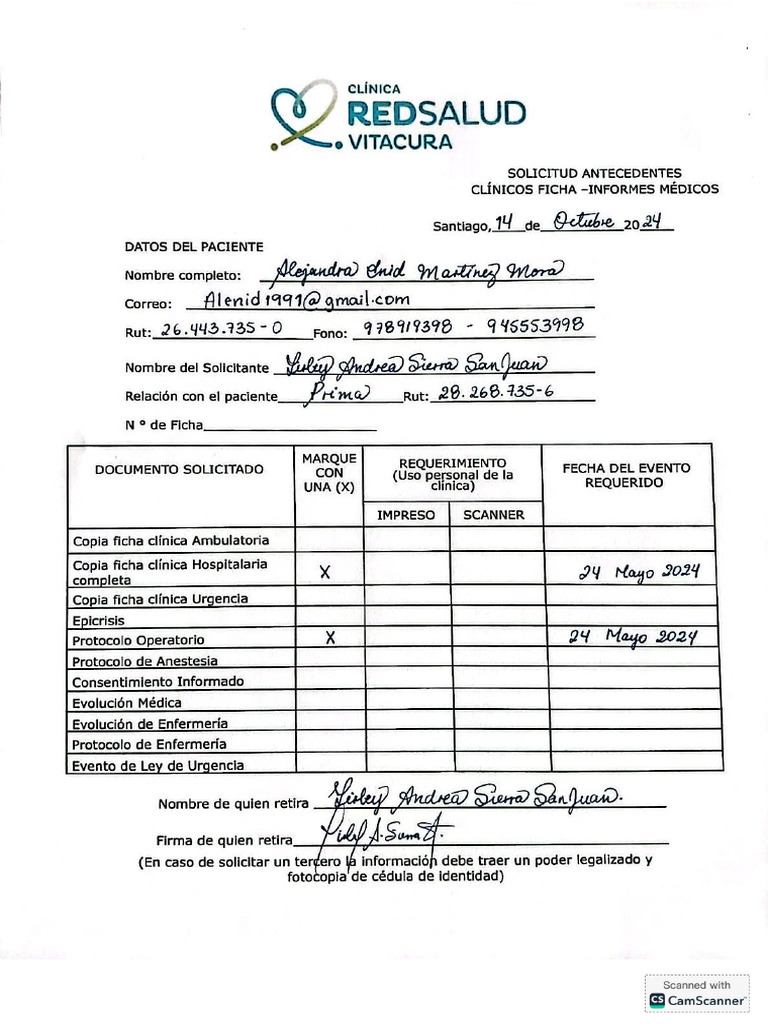 CLÍNICA
REDSALUD
VITACURA
SOLICITUD ANTECEDENTES
CLÍNICOS FICHA –INFORMES MÉDICOS
Santiago, 14 de Octubre 2024
DATOS DEL PACIENTE
Nombre completo: Alejandra Enid Martínez Mora
Correo: Alenid1991@gmail.com
Rut: 26.443.735-0 Fono: 978919398 - 945553998
Nombre del Solicitante Yisley Andrea Sierra SanJuan
Relación con el paciente Prima Rut: 28.268.735-6
N º de Ficha
DOCUMENTO SOLICITADO MARQUE CON UNA (X) REQUERIMIENTO (Uso personal de la clínica) FECHA DEL EVENTO REQUERIDO
IMPRESO SCANNER
Copia ficha clínica Ambulatoria
Copia ficha clínica Hospitalaria completa X 24 Mayo 2024
Copia ficha clínica Urgencia
Epicrisis
Protocolo Operatorio X 24 Mayo 2024
Protocolo de Anestesia
Consentimiento Informado
Evolución Médica
Evolución de Enfermería
Protocolo de Enfermería
Evento de Ley de Urgencia
Nombre de quien retira Yisley Andrea Sierra SanJuan.
Firma de quien retira
(En caso de solicitar un tercero la información debe traer un poder legalizado y
fotocopia de cédula de identidad)
Scanned with
CS CamScanner